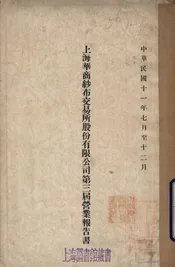 中華民國十一年七月至十二月
上海華商紗布交易所股份有限公司第三屆營業報告書
上海圖書館藏書